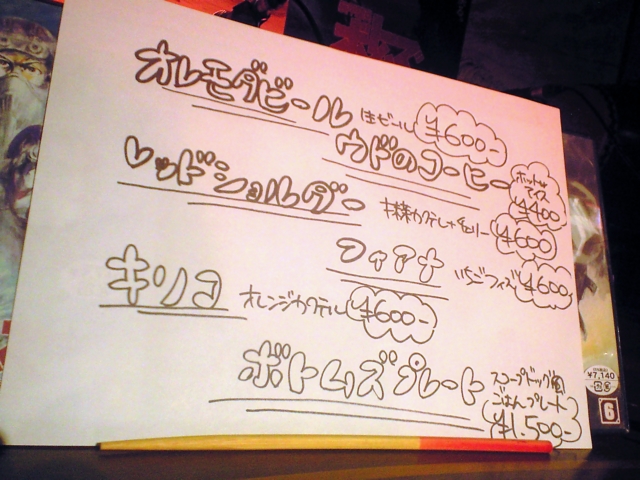 オレモダビール 生ビール ¥600-
ウドのコーヒー ホットorアイス ¥400
レッドショルダー 抹茶カクテル+チェリー ¥600
フィアナ いちごフィズ ¥600
キリコ オレンジカクテル ¥600-
ボトムズプレート スコープドッグ型ごはんプレート ¥1,500-
¥7,140
6